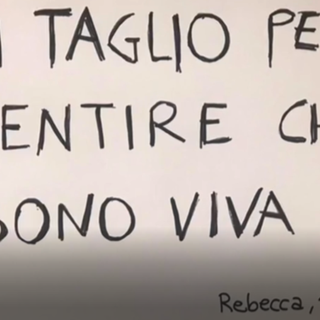 I TAGLIO PE
ENTIRE CH
SONO VIVA
Rebecca,